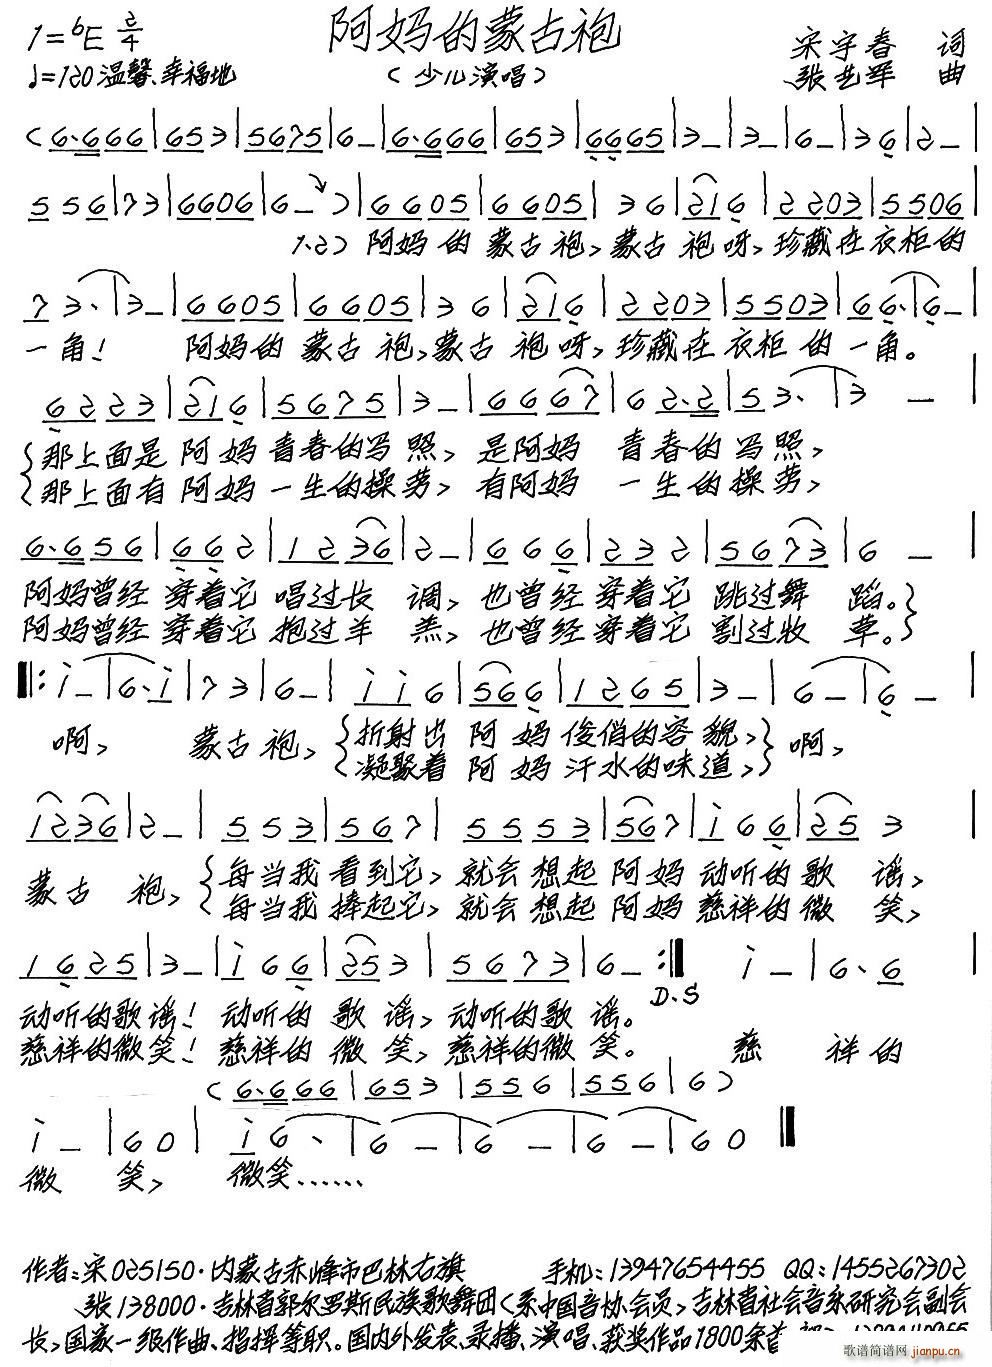 1=♭E 2/4 阿妈的蒙古袍 宋宇春 词
♩=120 温馨、幸福地 (少儿演唱) 张艺军 曲
(6·666|653|5675|6–|6·666|653|6665|3–|3–|6–|36|2–|
556|73|6606|6–)|6605|6605|36|216|2203|5506|
1.2) 阿妈的蒙古袍,蒙古袍呀,珍藏在衣柜的
73·|3–|6605|6605|36|216|2203|5503|66·|6–|
一角! 阿妈的蒙古袍,蒙古袍呀,珍藏在衣柜的一角。
6223|216|5675|3–|6667|62·2|53·|3–|
那上面是阿妈青春的写照,是阿妈青春的写照,
那上面有阿妈一生的操劳,有阿妈一生的操劳,
6·656|662|1236|2–|666|232|5673|6–|
阿妈曾经穿着它唱过长调,也曾经穿着它跳过舞蹈。
阿妈曾经穿着它抱过羊羔,也曾经穿着它割过牧草。
‖:i–|6·i|73|6–|ii6|566|1265|3–|6–|6–|
啊,蒙古袍,折射出阿妈俊俏的容貌,啊,
凝聚着阿妈汗水的味道,
1236|2–|553|567|5553|567|i66|253|
蒙古袍,每当我看到它,就会想起阿妈动听的歌谣,
每当我捧起它,就会想起阿妈慈祥的微笑,
1625|3–|i66|253|5673|6–:‖ i–|6·6|
D.S
动听的歌谣!动听的歌谣,动听的歌谣。
慈祥的微笑!慈祥的微笑,慈祥的微笑。 慈祥的
(6·666|653|556|556|6)
i–|60|i6·|6–|6–|6–|60‖
微笑,微笑……
作者:宋 025150·内蒙古赤峰市巴林右旗 手机:13947654455 QQ:1455267302
张 138000·吉林省郭尔罗斯民族歌舞团(系中国音协会员,吉林省社会音乐研究会副会
长,国家一级作曲、指挥等职。国内外发表、录播、演唱、获奖作品1800余首
歌谱简谱网 jianpu.cn